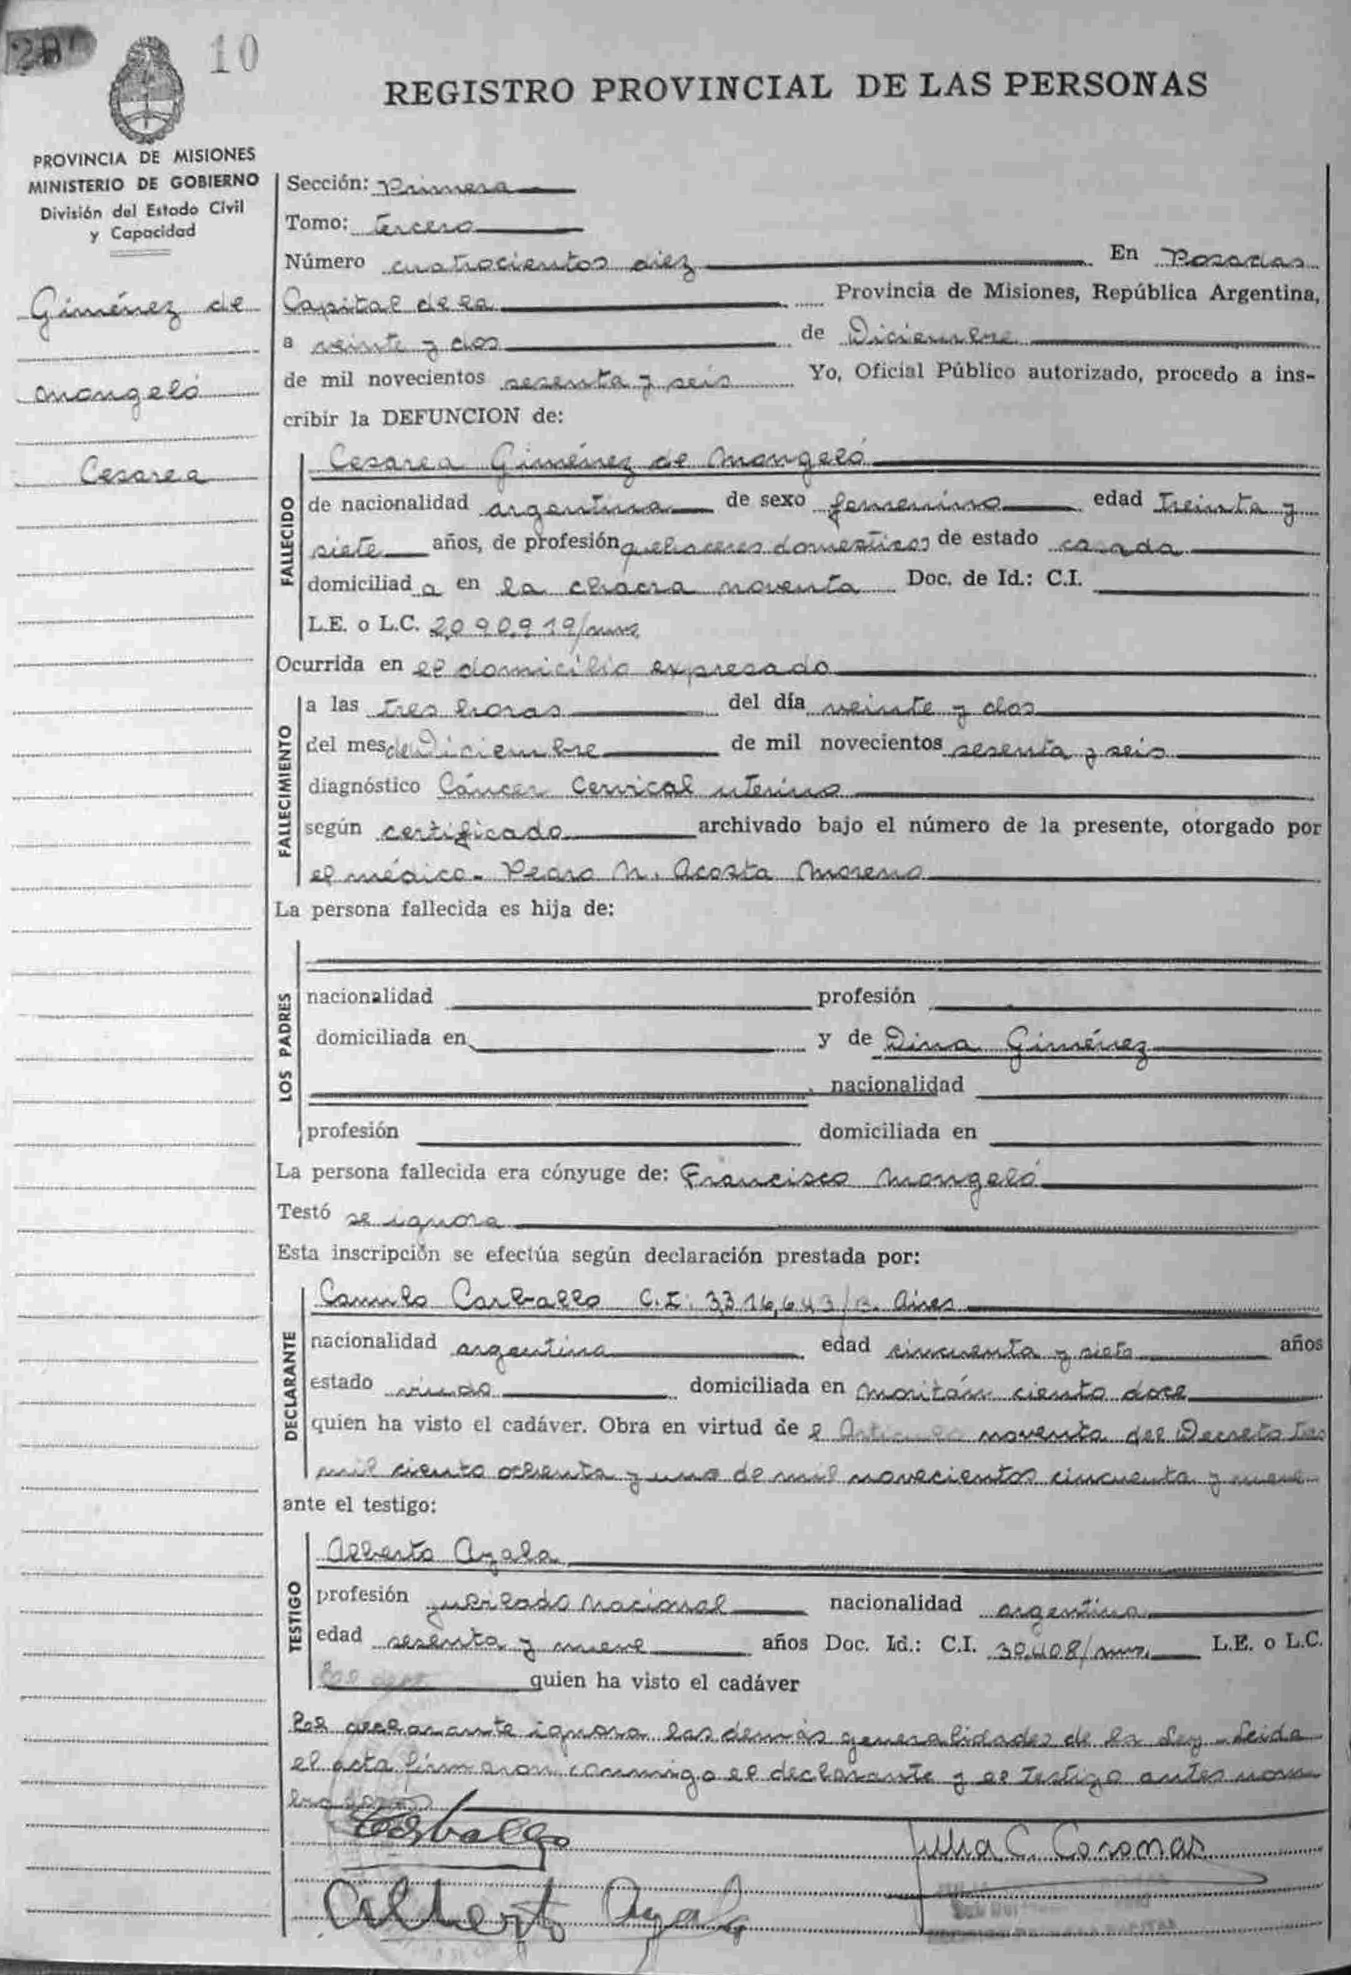 10
REGISTRO PROVINCIAL DE LAS PERSONAS
PROVINCIA DE MISIONES
MINISTERIO DE GOBIERNO
División del Estado Civil
y Capacidad
Giménez de
Mongeló
Cesarea
Sección: Primera
Tomo: tercero
Número cuatrocientos diez En Posadas
Capital de la Provincia de Misiones, República Argentina,
a veinte y dos de Diciembre
de mil novecientos sesenta y seis Yo, Oficial Público autorizado, procedo a ins-
cribir la DEFUNCION de:
FALLECIDO
Cesarea Giménez de Mongeló
de nacionalidad argentina de sexo femenino edad treinta y
siete años, de profesión quehaceres domesticos de estado casada
domiciliad a en la chacra noventa Doc. de Id.: C.I.
L.E. o L.C. 2,090,919/mnes
Ocurrida en el domicilio expresado
FALLECIMIENTO
a las tres horas del día veinte y dos
del mes de Diciembre de mil novecientos sesenta y seis
diagnóstico Cáncer Cervical uterino
según certificado archivado bajo el número de la presente, otorgado por
el médico- Pedro N. Acosta Moreno
La persona fallecida es hija de:
LOS PADRES
nacionalidad profesión
domiciliada en y de Dina Giménez
nacionalidad
profesión domiciliada en
La persona fallecida era cónyuge de: Francisco Mongeló
Testó se ignora
Esta inscripción se efectúa según declaración prestada por:
DECLARANTE
Camilo Carballo C.I: 3,316,643/B. Aires
nacionalidad argentina edad cincuenta y siete años
estado viudo domiciliada en Moritán ciento doce
quien ha visto el cadáver. Obra en virtud de l Artículo noventa del Decreto tres
mil ciento ochenta y uno de mil novecientos cincuenta y nueve
ante el testigo:
TESTIGO
Alberto Ayala
profesión jubilado Nacional nacionalidad argentina
edad sesenta y nueve años Doc. Id.: C.I. 30,408/mnes. L.E. o L.C.
quien ha visto el cadáver
El declarante ignora las demás generalidades de la Ley - Leida
el acta firmaron conmigo el declarante y el testigo antes nom
brados
Carballo
Julia C. Coronas
Alberto Ayala